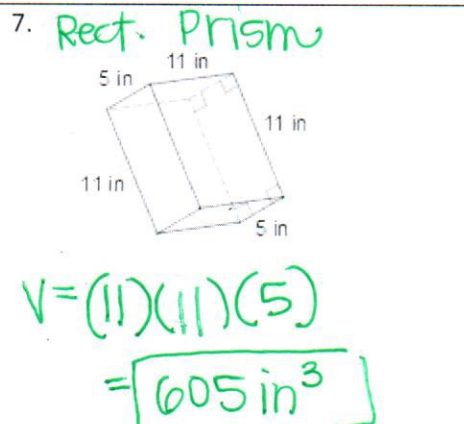 7. Rect. Prism
11 in
5 in
11 in
11 in
5 in
V=(11)(11)(5)
=605 in³